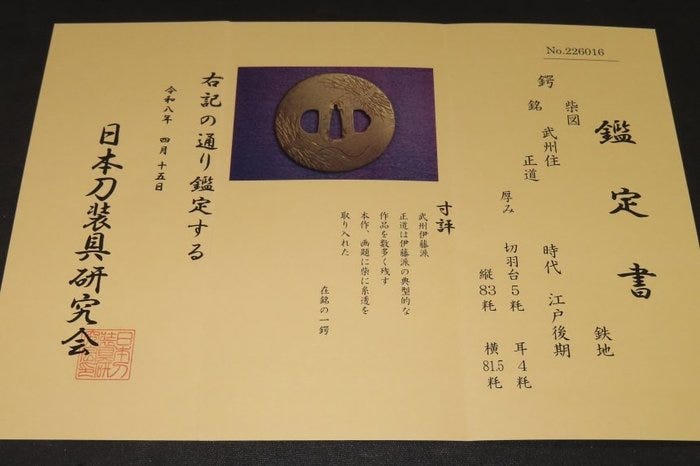 No.226016
鑑定書
鉄地
柴図
鍔 銘 武州住正道
時代 江戸後期
厚み 切羽台5粍 耳4粍
縦83粍 横81.5粍
寸評
武州伊藤派
正道は伊藤派の典型的な
作品を数多く残す
本作、画題に柴に糸透を
取り入れた
在銘の一鍔
右記の通り鑑定する
令和八年 四月十五日
日本刀装具研究会